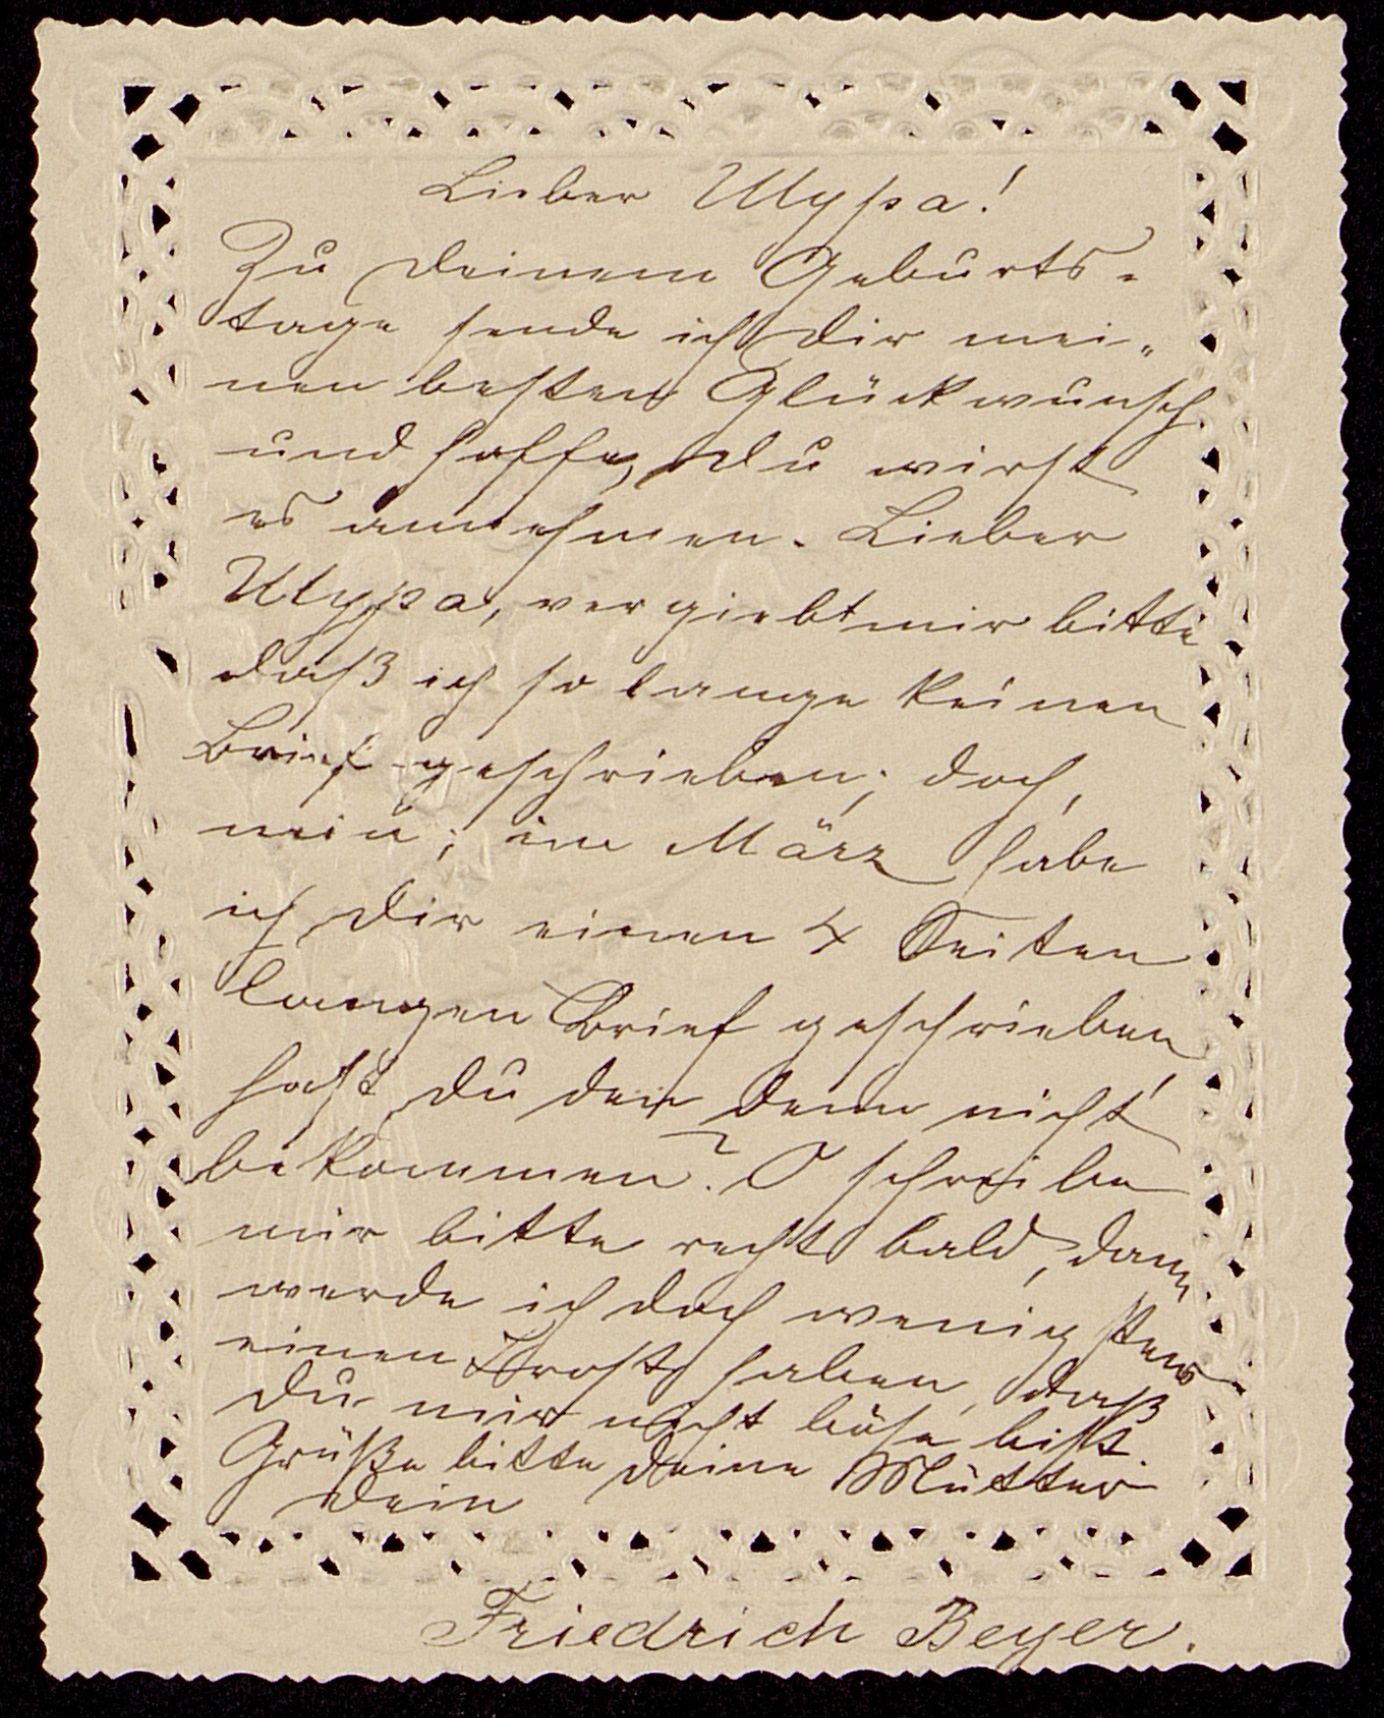 Lieber Ulyssa!
Zu deinem Geburts-
tage sende ich dir mei-
nen besten Glückwunsch
und hoffe, du wirst
es annehmen. Lieber
vergiebt mir bitte
daß ich so lange keinen
Brief geschrieben; doch,
nein; im März habe
ich dir einen 4 Seiten
langen Brief geschrieben
hast du den denn nicht
bekommen? O schreibe
mir bitte recht bald, dann
werde ich doch wenigstens
einen Trost haben, daß
du mir nicht böse bist.
Grüße bitte deine Mutter
dein
Friedrich Beyer.